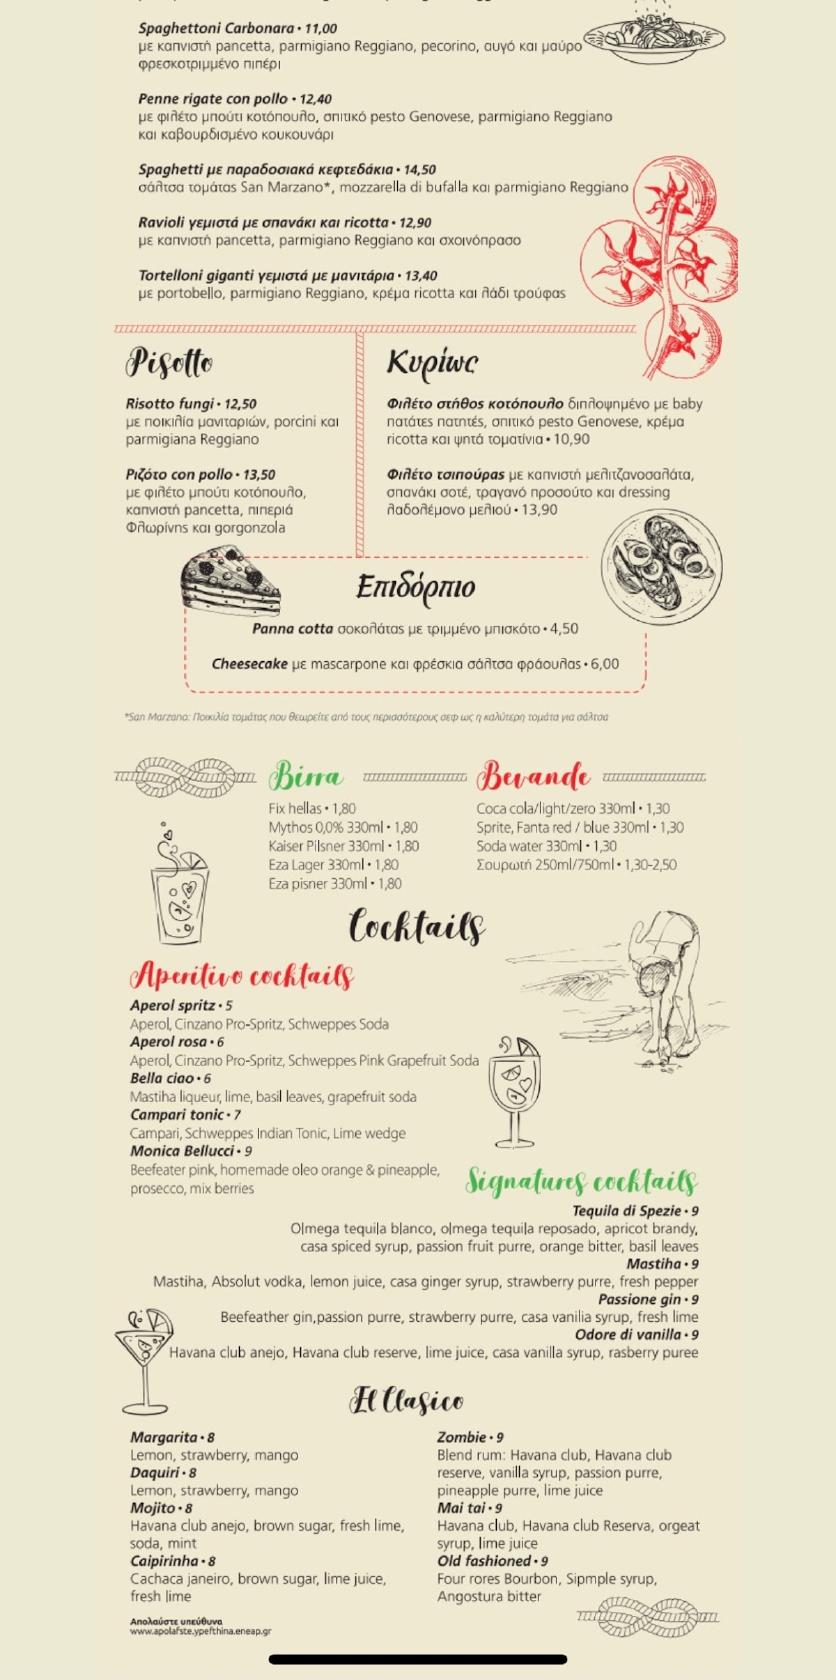 Spaghettoni Carbonara • 11,00
με καπνιστή pancetta, parmigiano Reggiano, pecorino, αυγό και μαύρο
φρεσκοτριμμένο πιπέρι
Penne rigate con pollo • 12,40
με φιλέτο μπούτι κοτόπουλο, σπιτικό pesto Genovese, parmigiano Reggiano
και καβουρδισμένο κουκουνάρι
Spaghetti με παραδοσιακά κεφτεδάκια • 14,50
σάλτσα τομάτας San Marzano*, mozzarella di bufalla και parmigiano Reggiano
Ravioli γεμιστά με σπανάκι και ricotta • 12,90
με καπνιστή pancetta, parmigiano Reggiano και σχοινόπρασο
Tortelloni giganti γεμιστά με μανιτάρια • 13,40
με portobello, parmigiano Reggiano, κρέμα ricotta και λάδι τρούφας
Ριζοttο
Risotto fungi • 12,50
με ποικιλία μανιταριών, porcini και
parmigiana Reggiano
Ριζότο con pollo • 13,50
με φιλέτο μπούτι κοτόπουλο,
καπνιστή pancetta, πιπεριά
Φλωρίνης και gorgonzola
Κυρίως
Φιλέτο στήθος κοτόπουλο διπλοψημένο με baby
πατάτες πατητές, σπιτικό pesto Genovese, κρέμα
ricotta και ψητά τοματίνια • 10,90
Φιλέτο τσιπούρας με καπνιστή μελιτζανοσαλάτα,
σπανάκι σοτέ, τραγανό προσούτο και dressing
λαδολέμονο μελιού • 13,90
Επιδόρπιο
Panna cotta σοκολάτας με τριμμένο μπισκότο • 4,50
Cheesecake με mascarpone και φρέσκια σάλτσα φράουλας • 6,00
*San Marzano: Ποικιλία τομάτας που θεωρείτε από τους περισσότερους σεφ ως η καλύτερη τομάτα για σάλτσα
Birra
Fix hellas • 1,80
Mythos 0,0% 330ml • 1,80
Kaiser Pilsner 330ml • 1,80
Eza Lager 330ml • 1,80
Eza pisner 330ml • 1,80
Bevande
Coca cola/light/zero 330ml • 1,30
Sprite, Fanta red / blue 330ml • 1,30
Soda water 330ml • 1,30
Σουρωτή 250ml/750ml • 1,30-2,50
Cocktails
Aperitivo cocktails
Aperol spritz • 5
Aperol, Cinzano Pro-Spritz, Schweppes Soda
Aperol rosa • 6
Aperol, Cinzano Pro-Spritz, Schweppes Pink Grapefruit Soda
Bella ciao • 6
Mastiha liqueur, lime, basil leaves, grapefruit soda
Campari tonic • 7
Campari, Schweppes Indian Tonic, Lime wedge
Monica Bellucci • 9
Beefeater pink, homemade oleo orange & pineapple,
prosecco, mix berries
Signatures cocktails
Tequila di Spezie • 9
Olmega tequila blanco, olmega tequila reposado, apricot brandy,
casa spiced syrup, passion fruit purre, orange bitter, basil leaves
Mastiha • 9
Mastiha, Absolut vodka, lemon juice, casa ginger syrup, strawberry purre, fresh pepper
Passione gin • 9
Beefeather gin,passion purre, strawberry purre, casa vanilia syrup, fresh lime
Odore di vanilla • 9
Havana club anejo, Havana club reserve, lime juice, casa vanilla syrup, rasberry puree
El Clasico
Margarita • 8
Lemon, strawberry, mango
Daquiri • 8
Lemon, strawberry, mango
Mojito • 8
Havana club anejo, brown sugar, fresh lime,
soda, mint
Caipirinha • 8
Cachaca janeiro, brown sugar, lime juice,
fresh lime
Zombie • 9
Blend rum: Havana club, Havana club
reserve, vanilla syrup, passion purre,
pineapple purre, lime juice
Mai tai • 9
Havana club, Havana club Reserva, orgeat
syrup, lime juice
Old fashioned • 9
Four rores Bourbon, Sipmple syrup,
Angostura bitter
Απολαύστε υπεύθυνα
www.apolafste.ypefthina.eneap.gr